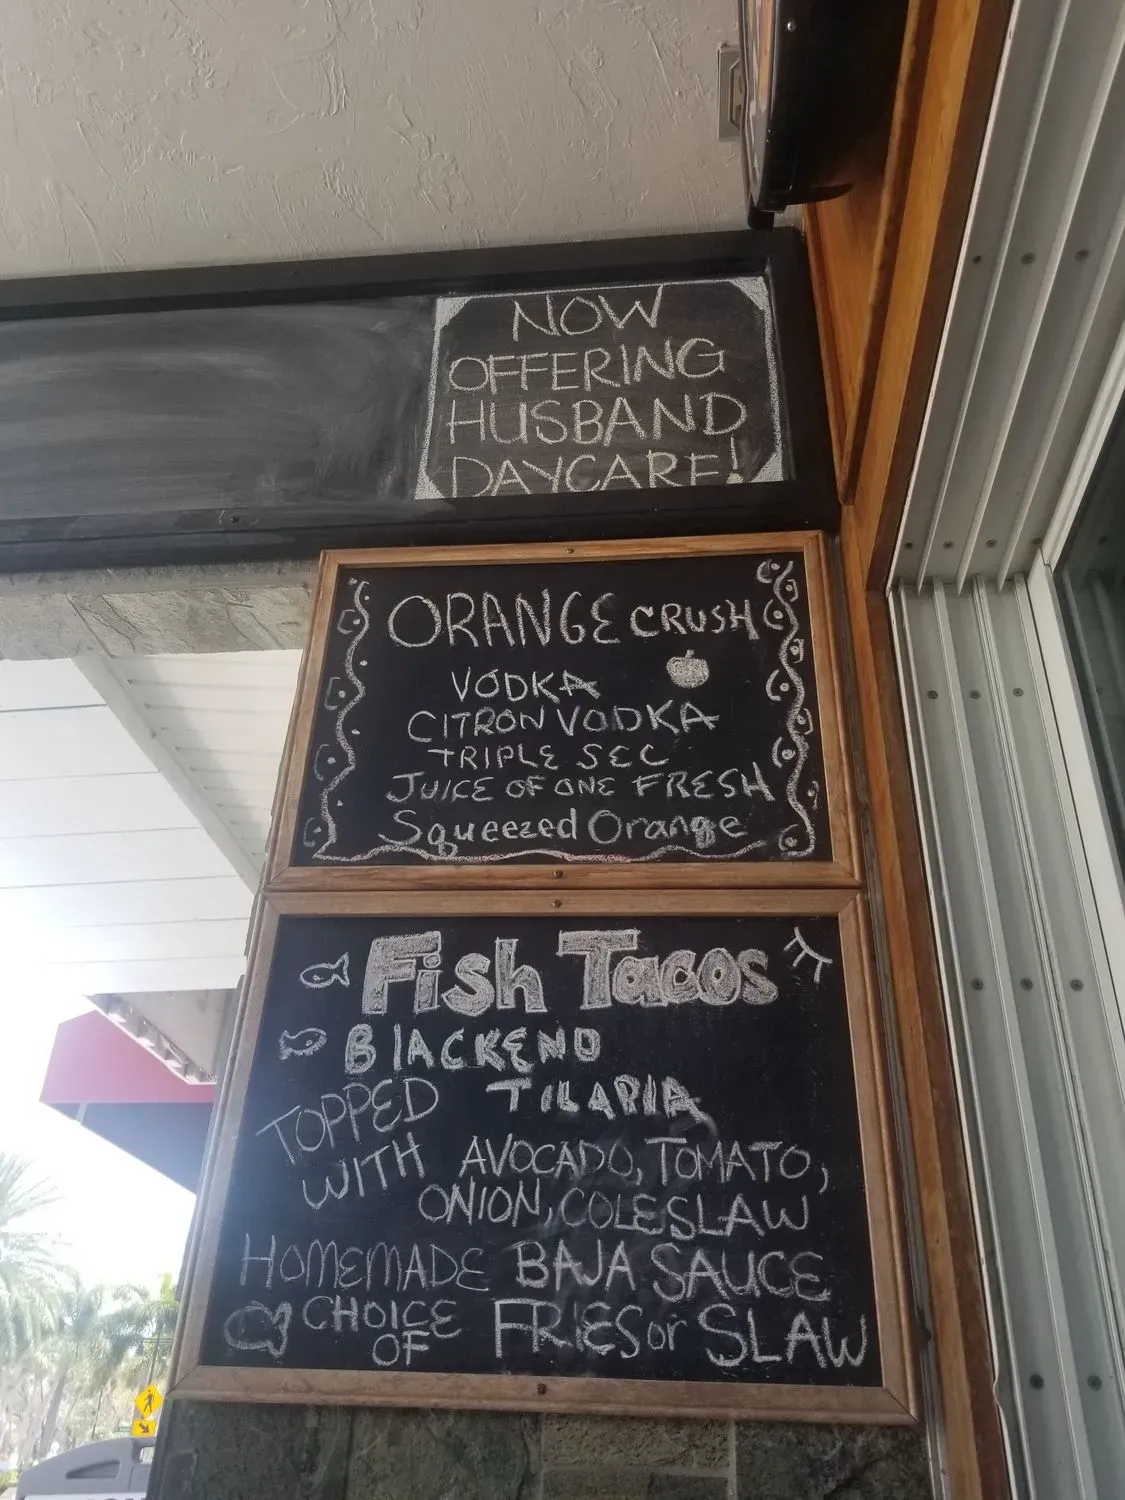 NOW
OFFERING
HUSBAND
DAYCARE!
ORANGE CRUSH
VODKA
CITRON VODKA
TRIPLE SEC
JUICE OF ONE FRESH
Squeezed Orange
Fish Tacos
BlACKEND
TILAPIA
TOPPED
WITH
AVOCADO, TOMATO,
ONION, COLESLAW
HOMEMADE BAJA SAUCE
CHOICE
OF
FRIES or SLAW